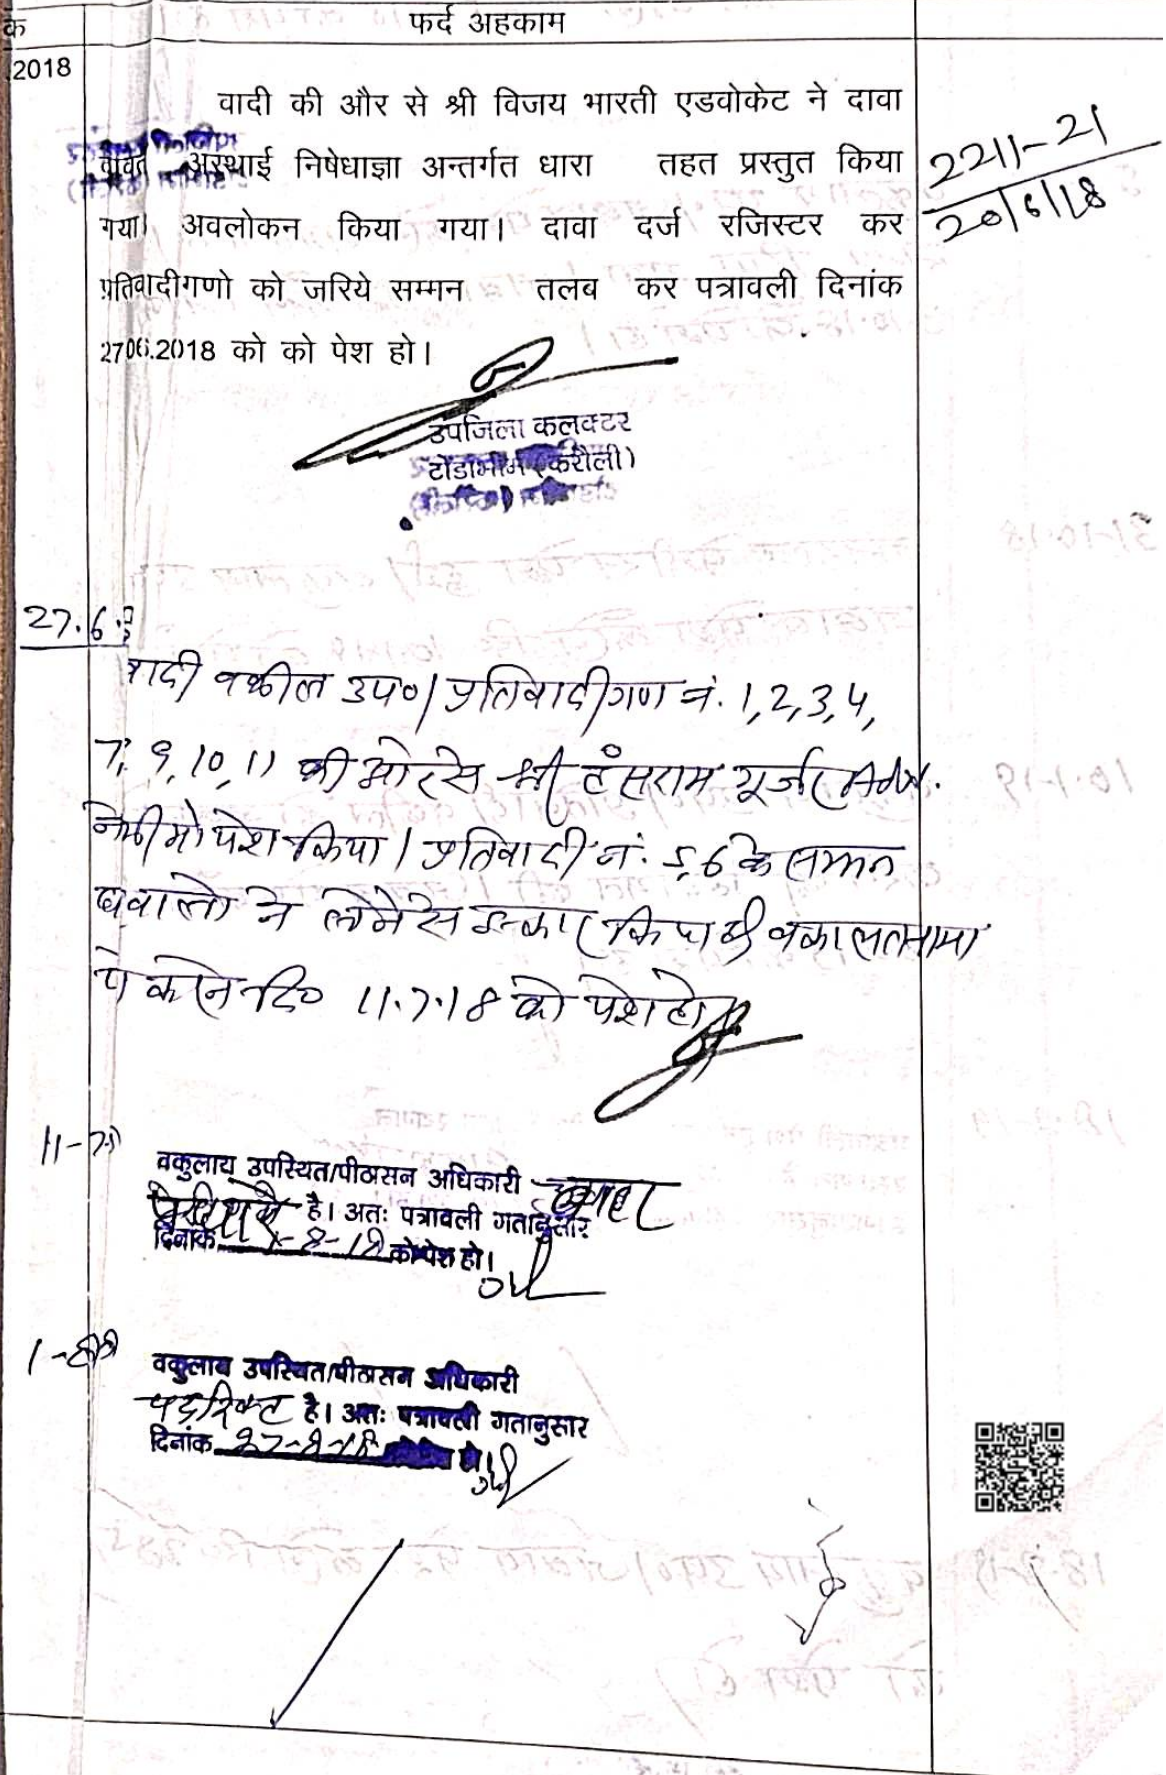 क
फर्द अहकाम
2018
वादी की और से श्री विजय भारती एडवोकेट ने दावा
बावत अस्थाई निषेधाज्ञा अन्तर्गत धारा तहत प्रस्तुत किया
गया। अवलोकन किया गया। दावा दर्ज रजिस्टर कर
प्रतिवादीगणो को जरिये सम्मन तलब कर पत्रावली दिनांक
2706.2018 को को पेश हो।
2211-21
20/6/18
उपजिला कलक्टर
टोडाभीम (करौली)
27.6.
वादी वकील उप०/ प्रतिवादीगण नं. 1,2,3,4,
7, 9, 10, 11 की ओर से श्री हंसराम गूर्जर Adv.
पेश किया/ प्रतिवादी नं. 5,6 के सम्मन
ने लेने से इन्कार किया वकालतनामा
पे करने दि० 11.7.18 को पेश हो
11-7-
वकुलाय उपस्थित/पीठासन अधिकारी
है। अतः पत्रावली गतानुसार
दिनांक 1-8-18 को पेश हो।
1-8-
वकुलाय उपस्थित/पीठासन अधिकारी
पद रिक्त है। अतः पत्रावली गतानुसार
दिनांक 27-8-18 हो।